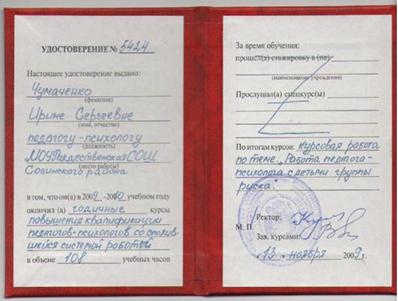 УДОСТОВЕРЕНИЕ № 5424
Настоящее удостоверение выдано:
Чумаченко
(фамилия)
Ирине Сергеевне
(имя, отчество)
педагогу-психологу
(должность)
МОУ Рождественская СОШ
(место работы)
Собинского района
в том, что он(а) в 2009 - 2010 учебном году
окончил (а) годичные курсы
повышения квалификации
педагогов-психологов со сложив-
шейся системой работы
в объеме 108 учебных часов
За время обучения:
прошел(а) стажировку в (на)
(наименование учреждения)
Прослушал(а) спецкурс(ы)
По итогам курсов: курсовая работа
по теме: "Работа педагога-
психолога с детьми группы
риска".
Ректор:
М. П.
Зав. курсами:
"13" ноября 2009 г.